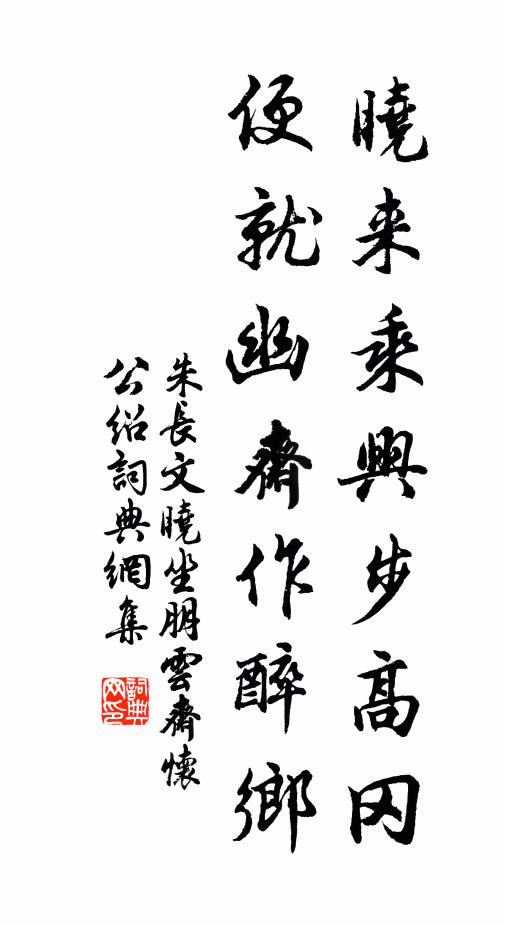 曉来乘興步高冈
便就幽齋作醉鄉
朱長文曉坐朋雲齋懷
公紹詞典網集
詞典网印